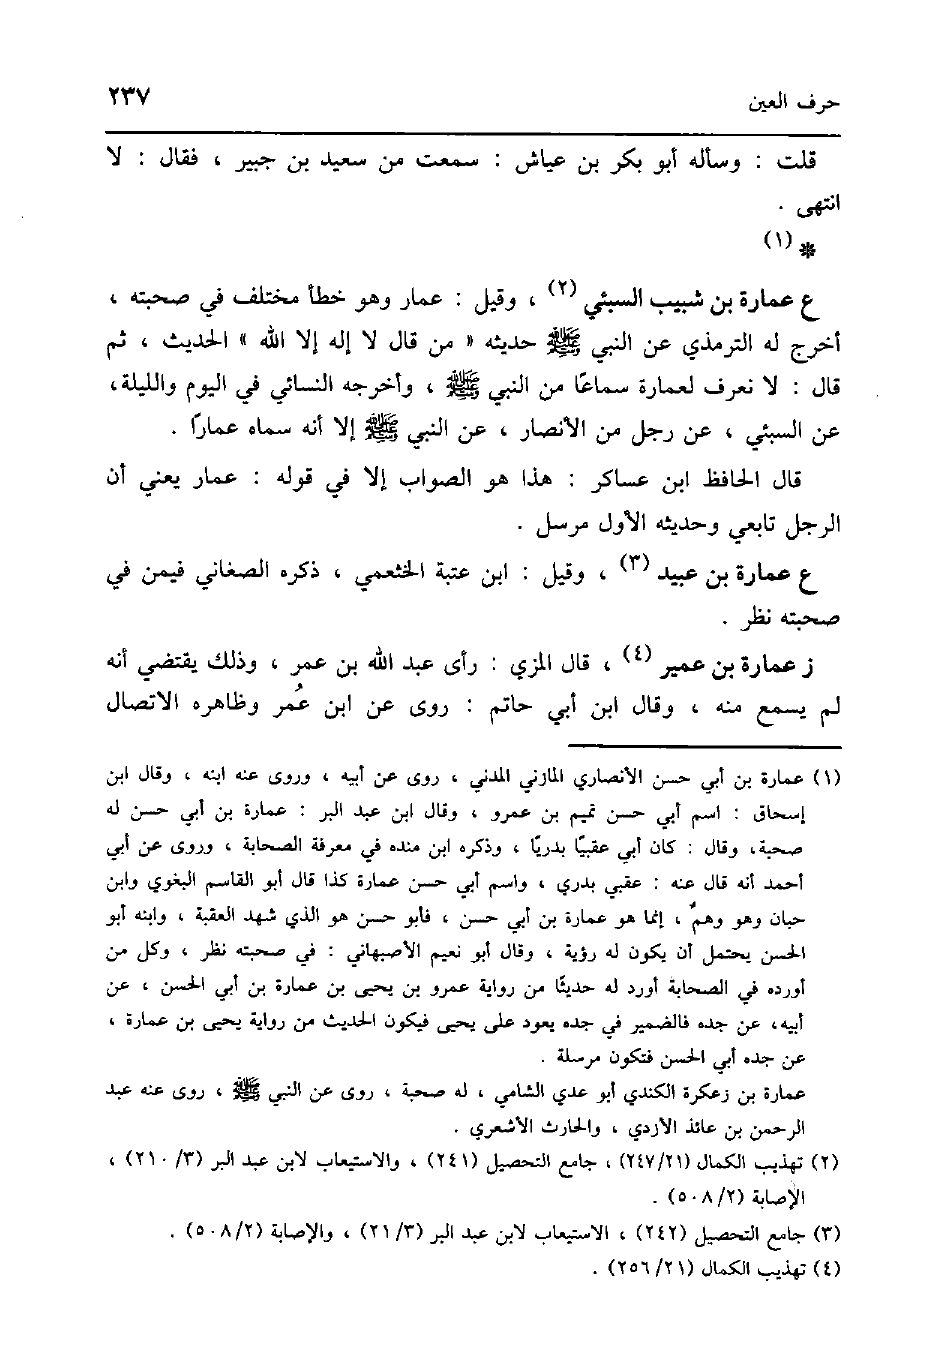 حرف العين ٢٣٧
قلت : وسأله أبو بكر بن عياش : سمعت من سعيد بن جبير ، فقال : لا
انتهى .
* (١)
ع عمارة بن شبيب السبئي (٢) ، وقيل : عمار وهو خطأ مختلف في صحبته ،
أخرج له الترمذي عن النبي ﷺ حديثه « من قال لا إله إلا الله » الحديث ، ثم
قال : لا نعرف لعمارة سماعًا من النبي ﷺ ، وأخرجه النسائي في اليوم والليلة،
عن السبئي ، عن رجل من الأنصار ، عن النبي ﷺ إلا أنه سماه عمارًا .
قال الحافظ ابن عساكر : هذا هو الصواب إلا في قوله : عمار يعني أن
الرجل تابعي وحديثه الأول مرسل .
ع عمارة بن عبيد (٣) ، وقيل : ابن عتبة الخثعمي ، ذكره الصغاني فيمن في
صحبته نظر .
ز عمارة بن عمير (٤) ، قال المزي : رأى عبد الله بن عمر ، وذلك يقتضي أنه
لم يسمع منه ، وقال ابن أبي حاتم : روى عن ابن عُمر وظاهره الاتصال
(١) عمارة بن أبي حسن الأنصاري المازني المدني ، روى عن أبيه ، وروى عنه ابنه ، وقال ابن
إسحاق : اسم أبي حسن تميم بن عمرو ، وقال ابن عبد البر : عمارة بن أبي حسن له
صحبة، وقال : كان أبي عقبيًا بدريًا ، وذكره ابن منده في معرفة الصحابة ، وروى عن أبي
أحمد أنه قال عنه : عقبي بدري ، واسم أبي حسن عمارة كذا قال أبو القاسم البغوي وابن
حبان وهو وهمٌ ، إنما هو عمارة بن أبي حسن ، فأبو حسن هو الذي شهد العقبة ، وابنه أبو
الحسن يحتمل أن يكون له رؤية ، وقال أبو نعيم الأصبهاني : في صحبته نظر ، وكل من
أورده في الصحابة أورد له حديثًا من رواية عمرو بن يحيى بن عمارة بن أبي الحسن ، عن
أبيه، عن جده فالضمير في جده يعود على يحيى فيكون الحديث من رواية يحيى بن عمارة ،
عن جده أبي الحسن فتكون مرسلة .
عمارة بن زعكرة الكندي أبو عدي الشامي ، له صحبة ، روى عن النبي ﷺ ، روى عنه عبد
الرحمن بن عائذ الأزدي ، والحارث الأشعري .
(٢) تهذيب الكمال (٢٤٧/٢١) ، جامع التحصيل (٢٤١) ، والاستيعاب لابن عبد البر (٢١٠/٣) ،
الإصابة (٥٠٨/٢) .
(٣) جامع التحصيل (٢٤٢) ، الاستيعاب لابن عبد البر (٢١/٣) ، والإصابة (٥٠٨/٢) .
(٤) تهذيب الكمال (٢٥٦/٢١) .